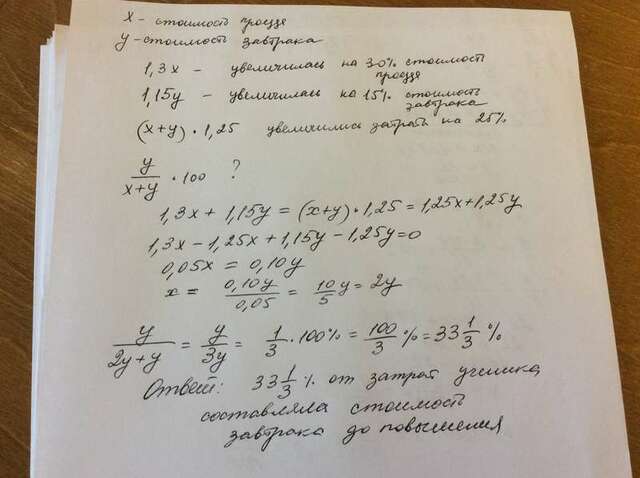 x - стоимость проезда
y - стоимость завтрака
1,3x - увеличилась на 30% стоимость
проезда
1,15y - увеличилась на 15% стоимость
завтрака
(x+y) · 1,25 увеличились затраты на 25%
y/(x+y) · 100 ?
1,3x + 1,15y = (x+y) · 1,25 = 1,25x + 1,25y
1,3x - 1,25x + 1,15y - 1,25y = 0
0,05x = 0,10y
x = 0,10y/0,05 = 10/5 y = 2y
y/(2y+y) = y/3y = 1/3 · 100% = 100/3 % = 33 1/3 %
Ответ: 33 1/3 % от затрат ученика
составляла стоимость
завтрака до повышения